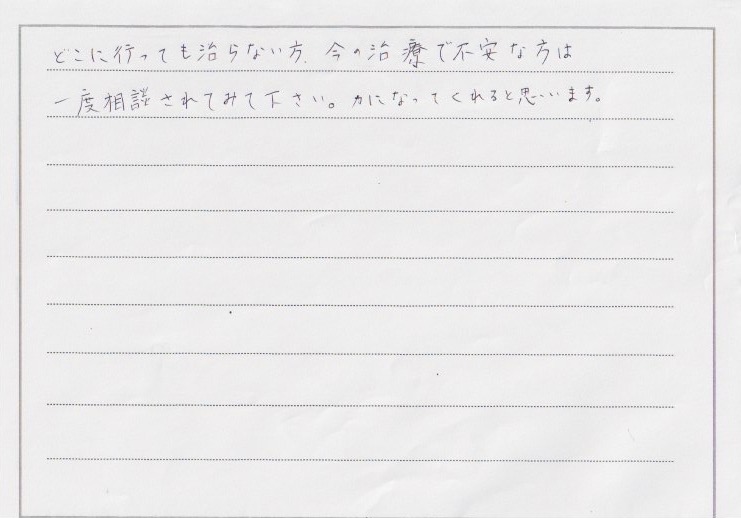 どこに行っても治らない方、今の治療で不安な方は
一度相談されてみて下さい。力になってくれると思います。